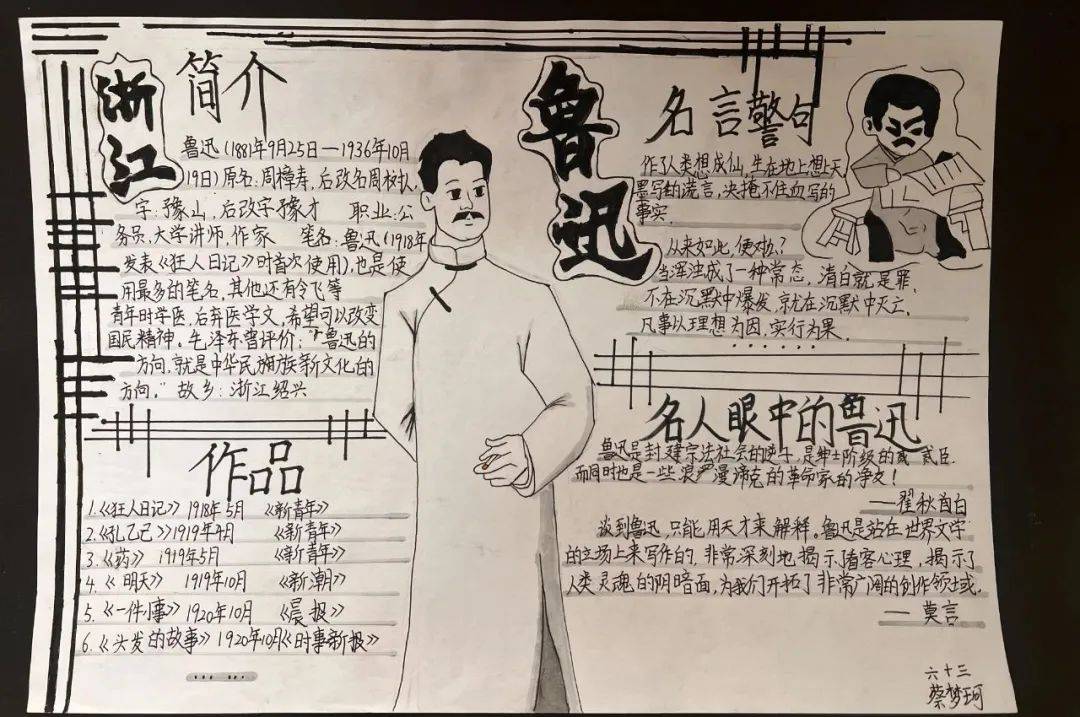 浙江
简介
鲁迅(1881年9月25日—1936年10月
19日)原名:周樟寿,后改名周树人,
字:豫山,后改字豫才 职业:公
务员,大学讲师,作家 笔名:鲁迅(1918年
发表《狂人日记》时首次使用),也是使
用最多的笔名,其他还有令飞等
青年时学医,后弃医学文,希望可以改变
国民精神。毛泽东曾评价:“鲁迅的
方向,就是中华民族新文化的
方向。”故乡:浙江绍兴
作品
1.《狂人日记》1918年5月 《新青年》
2.《孔乙己》1919年4月 《新青年》
3.《药》 1919年5月 《新青年》
4.《明天》 1919年10月 《新潮》
5.《一件小事》1920年10月 《晨报》
6.《头发的故事》1920年10月《时事新报》
......
鲁迅
名言警句
作了人类想成仙,生在地上想上天
墨写的谎言,决掩不住血写的
事实.
从来如此,便对么?
当浑浊成了一种常态,清白就是罪.
不在沉默中爆发,就在沉默中灭亡.
凡事以理想为因,实行为果.
......
名人眼中的鲁迅
鲁迅是封建宗法社会的逆子,是绅士阶级的贰臣.
而同时也是一些浪漫谛克的革命家的诤友!
——瞿秋白
谈到鲁迅,只能用天才来解释。鲁迅是站在世界文学
的立场上来写作的,非常深刻地揭示了看客心理,揭示了
人类灵魂的阴暗面,为我们开拓了非常广阔的创作领域.
——莫言
六十三
蔡梦珂